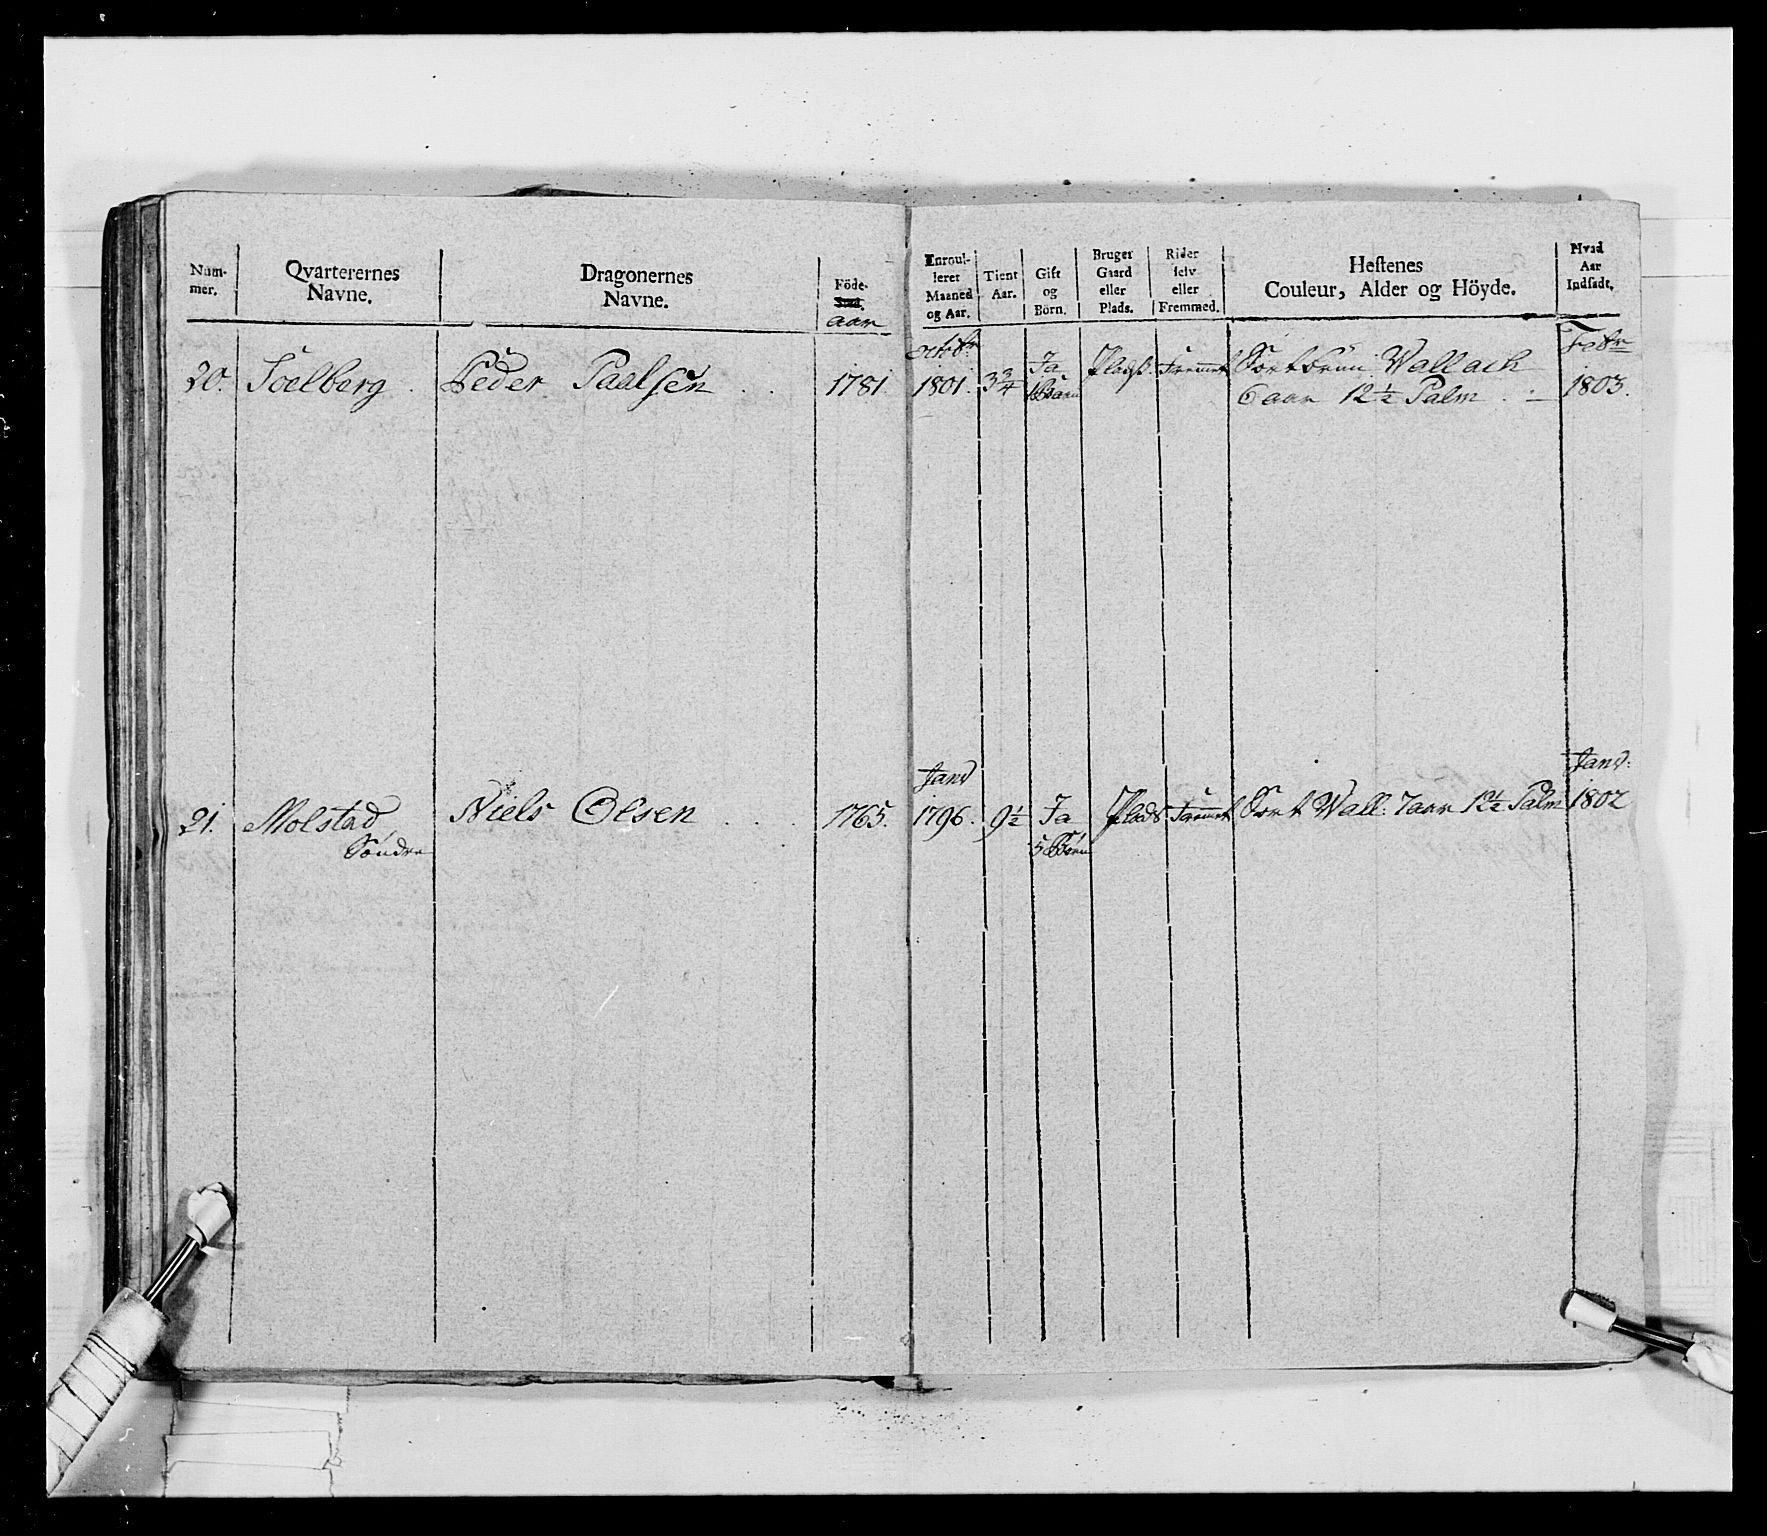 Num-
mer.
Qvarterernes
Navne.
Dragonernes
Navne.
Föde-
Sted.
aar
Enroul-
leret
Maaned
og Aar.
Tient
Aar.
Gift
og
Börn.
Bruger
Gaard
eller
Plads.
Rider
selv
eller
Fremmed.
Hestenes
Couleur, Alder og Höyde.
Hvad
Aar
Indsadt.
20. Soelberg. Peder Paalsen 1781
octobr
1801. 3 3/4
Ja
1 Barn
Plads. Fremmet
Sortbrun Wallach
6 aar 12 1/2 Palm
Febr
1803.
21. Molstad
Søndre
Niels Olsen 1765.
Janv
1796. 9 1/2
Ja
5 Børn
Plads Fremmet Sort Wall. 7 aar 12 1/2 Palm
Janv:
1802